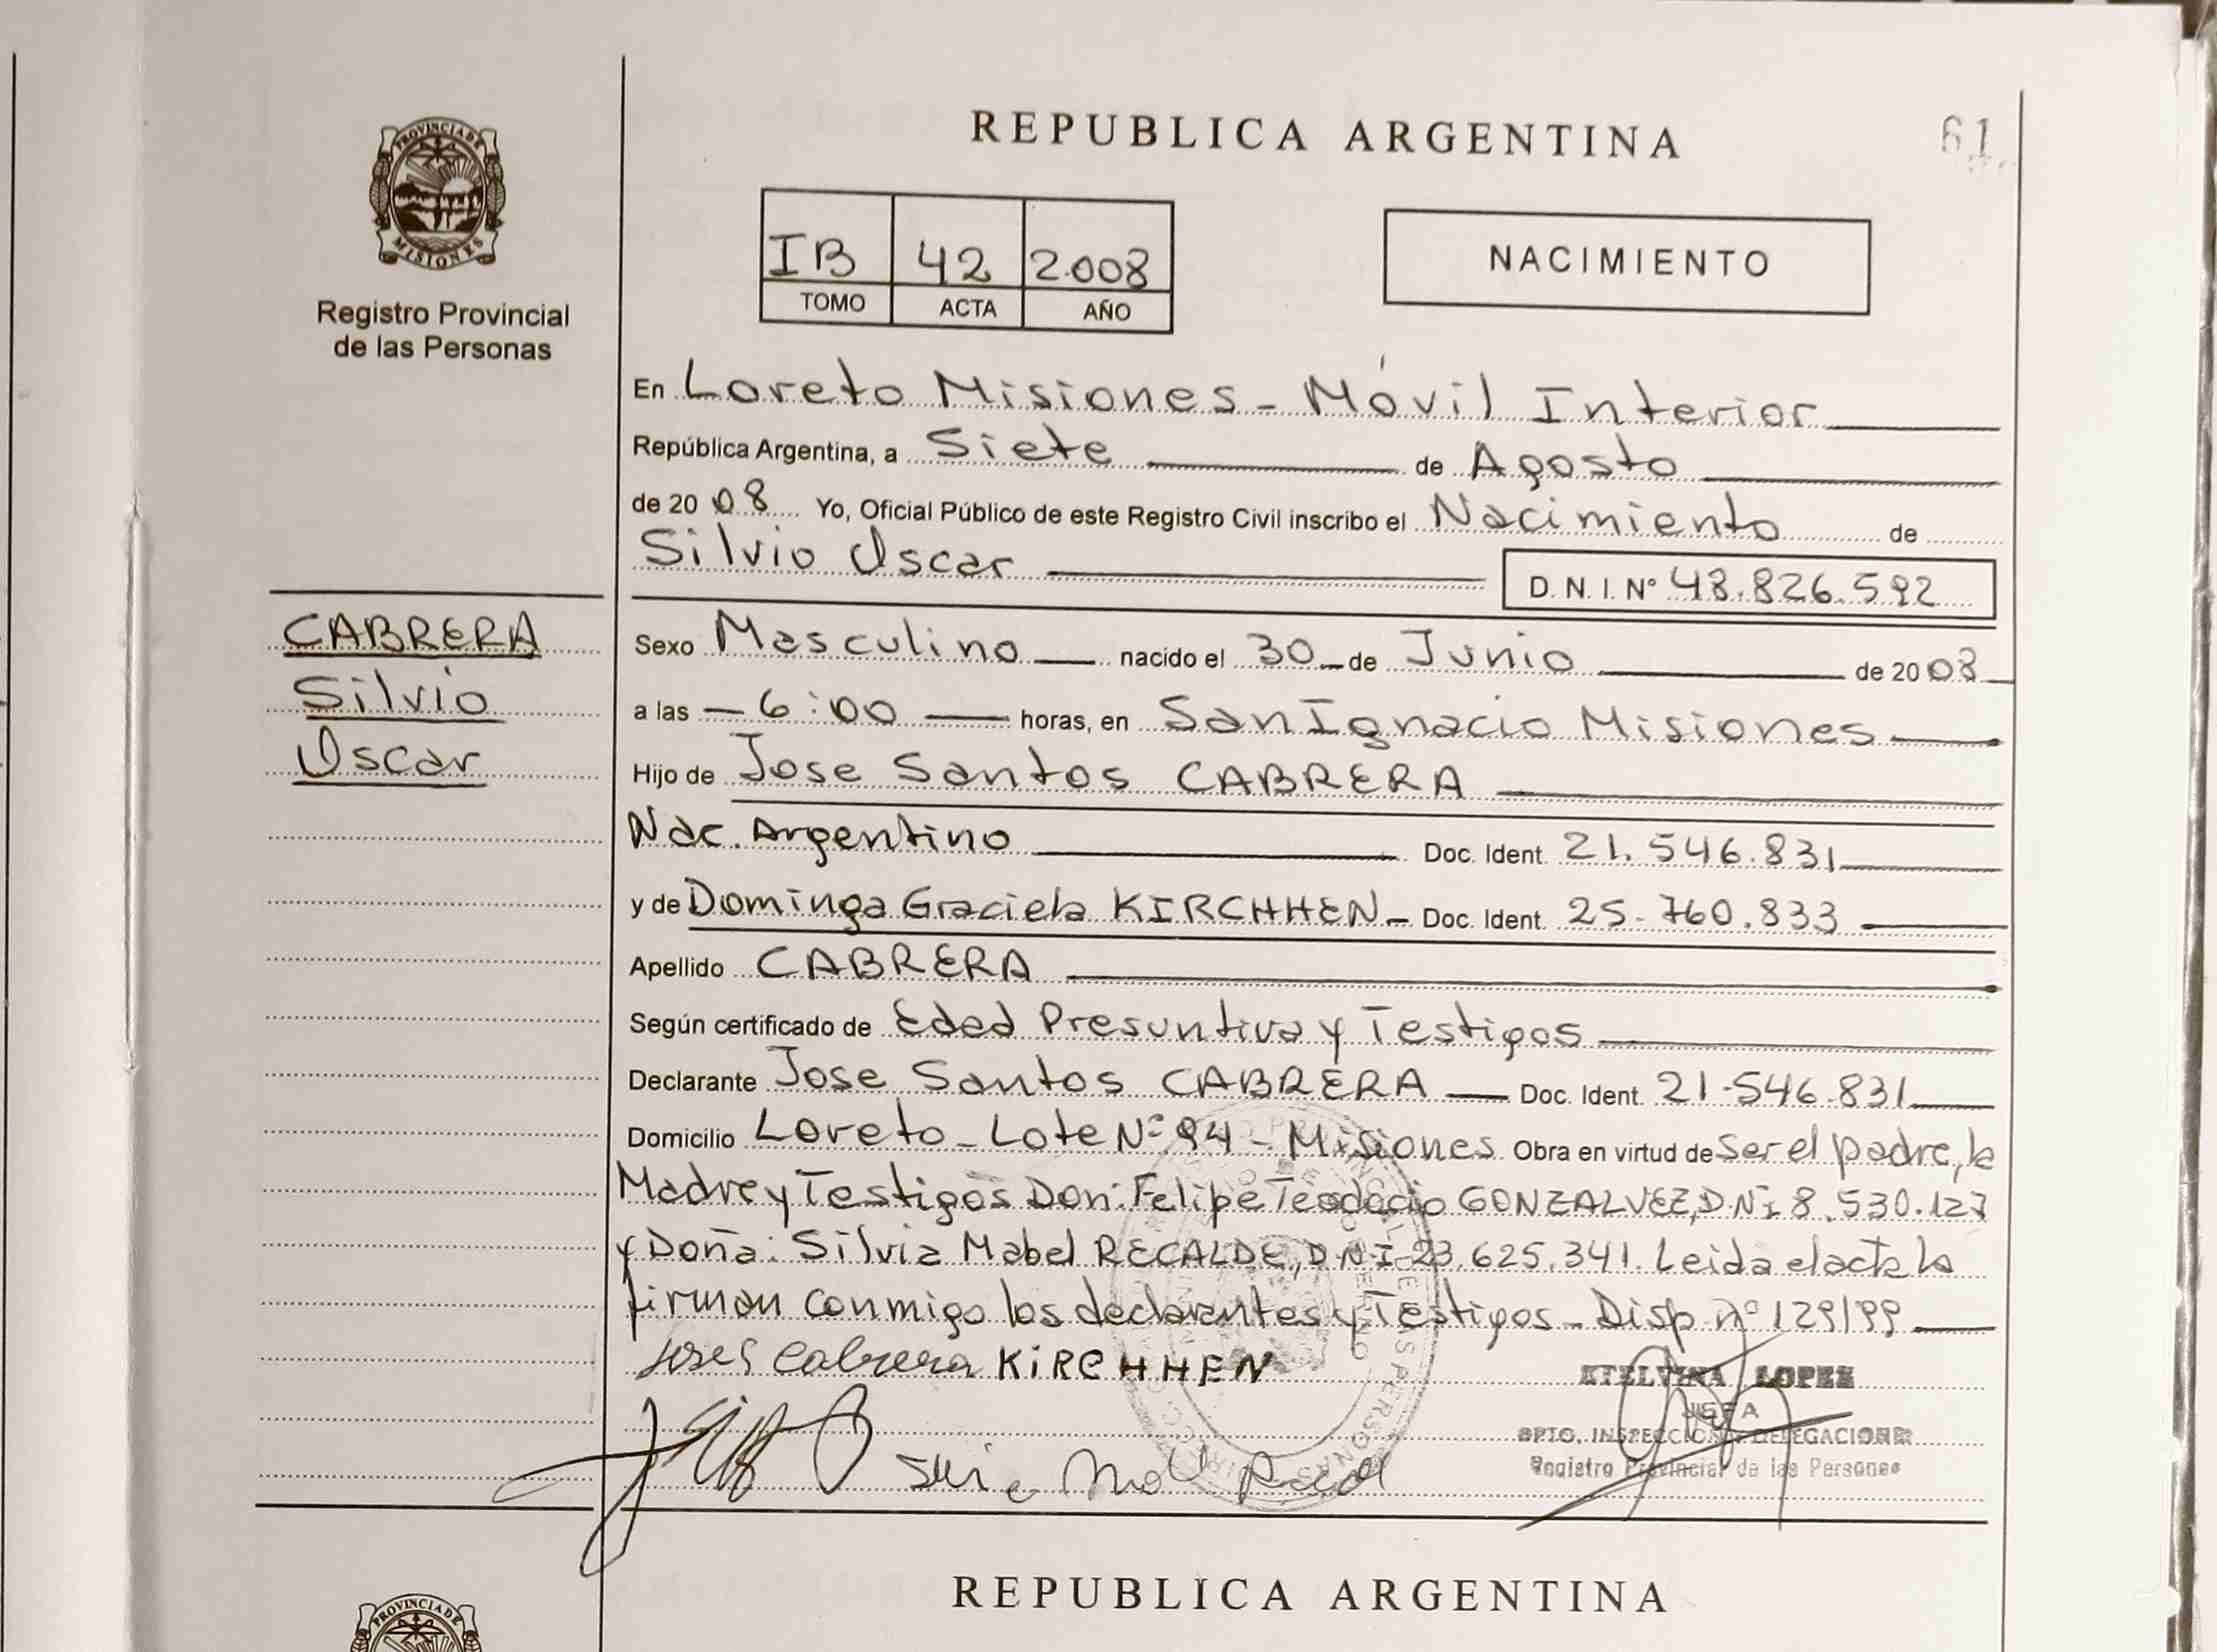 REPUBLICA ARGENTINA
61
PROVINCIA DE MISIONES
Registro Provincial
de las Personas
IB 42 2.008
TOMO ACTA AÑO
NACIMIENTO
En Loreto Misiones - Móvil Interior
República Argentina, a Siete de Agosto
de 20 08 Yo, Oficial Público de este Registro Civil inscribo el Nacimiento de
Silvio Oscar D. N. I. Nº 48.826.592
CABRERA
Silvio
Oscar
Sexo Masculino nacido el 30 de Junio de 20 08
a las - 6:00 horas, en San Ignacio Misiones
Hijo de Jose Santos CABRERA
Nac. Argentino Doc. Ident. 21.546.831
y de Dominga Graciela KIRCHHEN - Doc. Ident. 25-760.833
Apellido CABRERA
Según certificado de Edad Presuntiva y Testigos
Declarante Jose Santos CABRERA Doc. Ident. 21-546.831
Domicilio Loreto - Lote Nº 94 - Misiones Obra en virtud de Ser el padre, la
Madre y Testigos Don: Felipe GONZALVEZ, D.N.I 8.530.127
y Doña: Silvia Mabel RECALDE, D.N.I-23.625.341. Leida el acta la
firman conmigo los declarantes y Testigos - Disp. nº 129/99
Cabrera KIRCHHEN
LOPEZ
JEFA
DPTO. INSPECCION DELEGACIONES
Registro Provincial de las Personas
REPUBLICA ARGENTINA
PROVINCIA DE